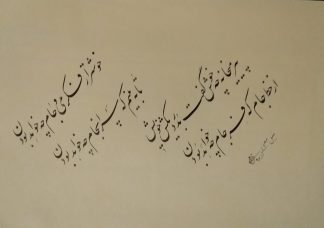 خوشتر از فکر می و جام چه خواهد بودن
تا ببینم که سرانجام چه خواهد بودن
پیر میخانه چه خوش گفت بدردی کش خویش
از خط جام که فرجام چه خواهد بودن